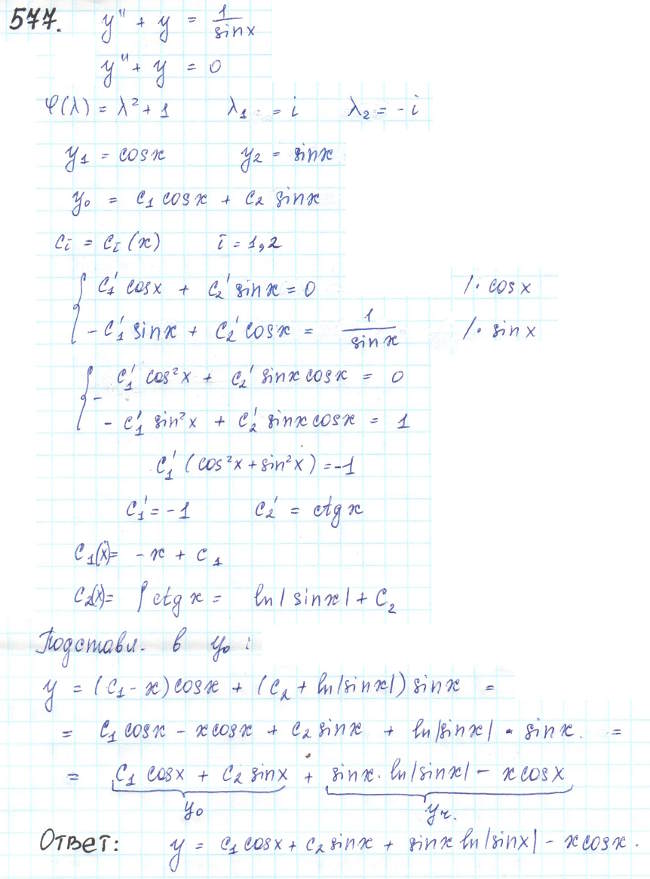 577. y'' + y = 1/sinx
y'' + y = 0
φ(λ) = λ² + 1 λ₁ = i λ₂ = -i
y₁ = cosx y₂ = sinx
y₀ = C₁ cosx + C₂ sinx
Ci = Ci (x) i = 1,2
{ C₁' cosx + C₂' sinx = 0 /· cosx
- C₁' sinx + C₂' cosx = 1/sinx /· sinx
{ - C₁' cos²x + C₂' sinx cosx = 0
- C₁' sin²x + C₂' sinx cosx = 1
C₁' (cos²x + sin²x) = -1
C₁' = -1 C₂' = ctg x
C₁(x) = -x + C₁
C₂(x) = ∫ ctg x = ln|sinx| + C₂
Подставл. в y₀ :
y = (C₁ - x) cosx + (C₂ + ln|sinx|) sinx =
= C₁ cosx - x cosx + C₂ sinx + ln|sinx| · sinx. =
= C₁ cosx + C₂ sinx + sinx · ln|sinx| - x cosx
y₀ yч.
Ответ: y = C₁ cosx + C₂ sinx + sinx ln|sinx| - x cosx.